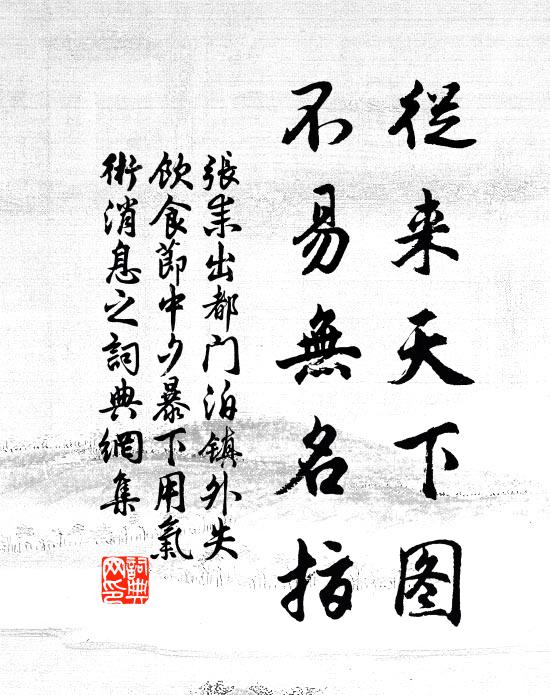 從来天下图
不易無名指
張耒出都门泊鎮外失
飲食節中夕暴下用氣
術消息之詞典網集
詞典
网印